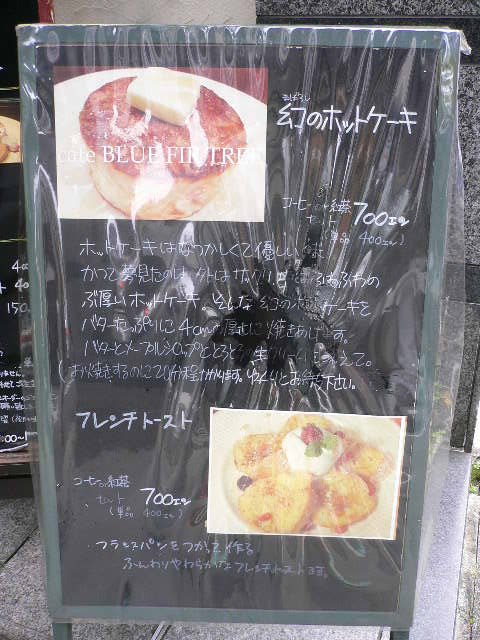 café BLUE FIR TREE
まぼろし
幻のホットケーキ
コーヒーor紅茶
セット 700エン
(単品 400エン)
ホットケーキはなつかしくて優しい味
かつて夢見たのは、外はサックリ 中はふわふわの
ぶ厚いホットケーキ。そんな幻のホットケーキを
バターたっぷりに4cmの厚さに焼きあげます。
バターとメープルシロップととろとろ生クリームを添えて。
お焼きするのに20分程かかります。ゆっくりとお待ち下さい。
フレンチトースト
コーヒーor紅茶
セット 700エン
(単品 400エン)
フランスパンをつかって作る
ふんわりやわらかなフレンチトーストです。
150
00〜